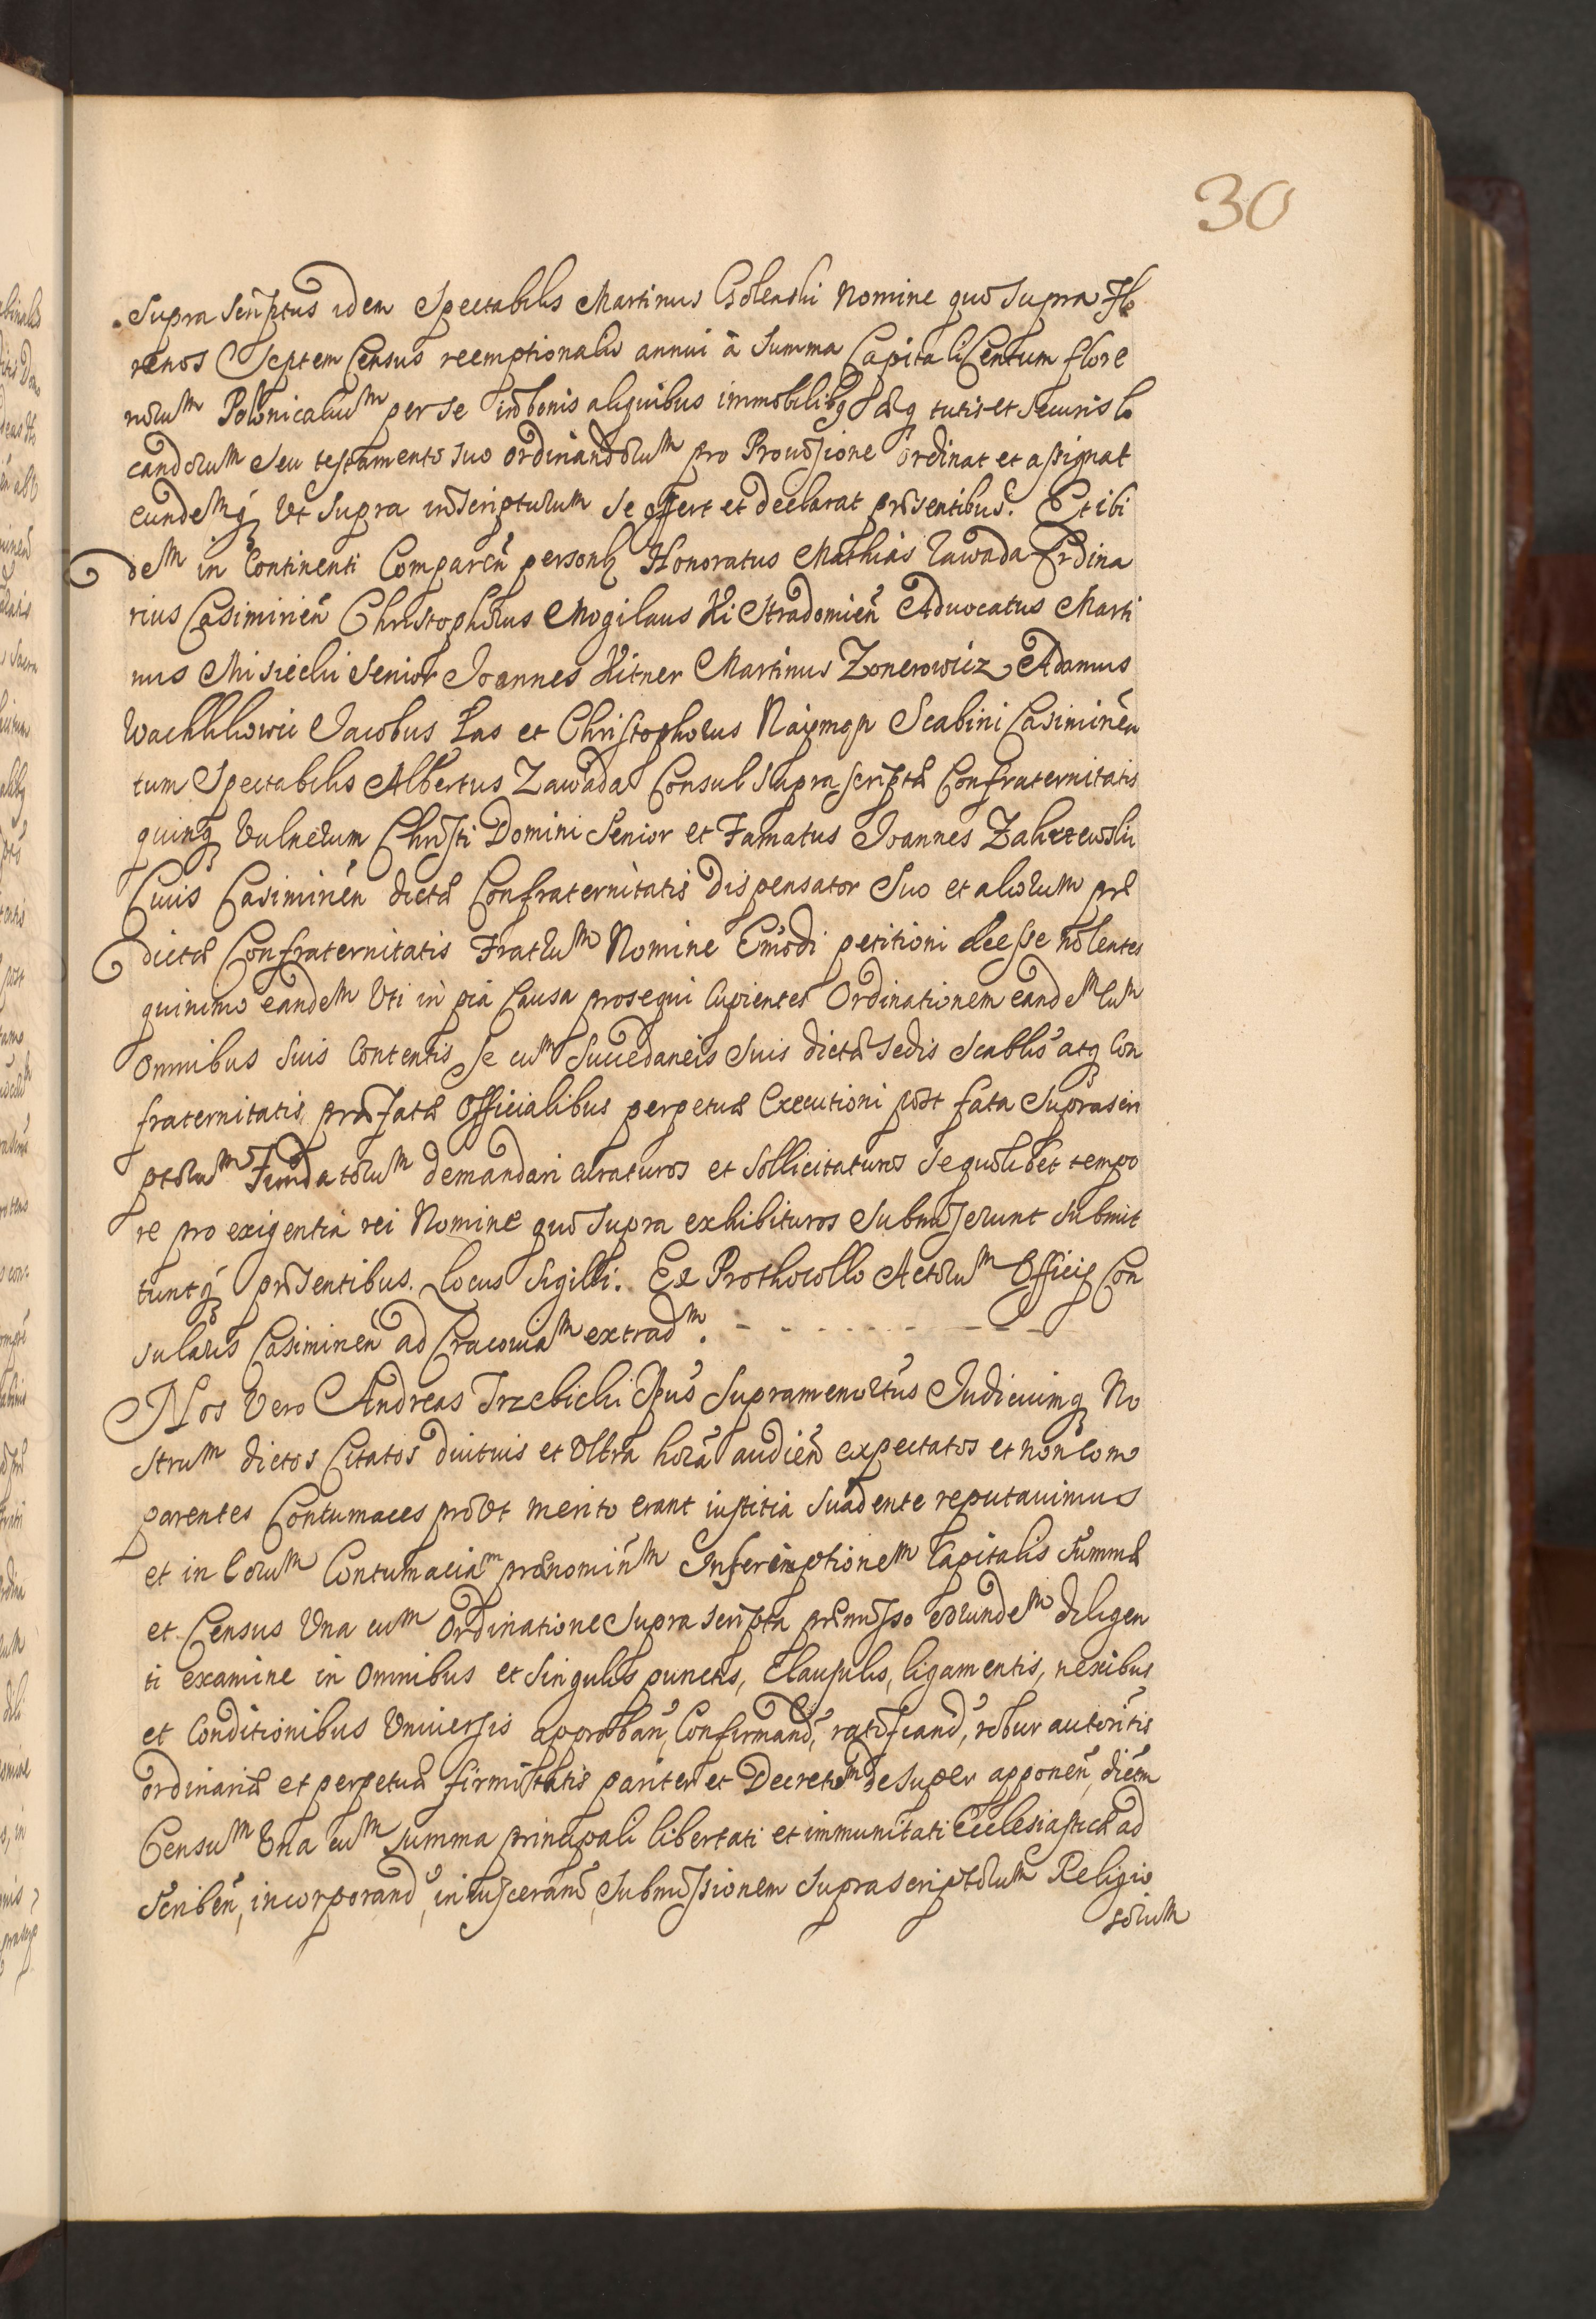 30
Supra scriptus idem Spectabilis Martinus Golenski Nomine quo supra Flo
renos Septem Census reemptionalis annui à Summa Capitali Centum flore
norum Polonicalium per se in bonis aliquibus immobilibq aeq tutis et securis lo
candorum seu testamento suo ordinandorum pro Prouisione ordinat et assignat
eundemq Vt supra inscripturum se offert et declarat pñsentibus. Et ibi
dem in Continenti Comparen personlr Honoratus Mathias Zawada Ordina
rius Casimirień Christophorus Mogilaus Ki Stradomień Aduocatus Marti
nus Misiecki Senior Joannes Kitner Martinus Zonerowicz Adamus
Wachlowic Jacobus Las et Christophorus Scabini Casimirień
tum Spectabilis Albertus Zawada Consul supra scriptæ Confraternitatis
quinq Vulnerum Christi Domini Senior et Famatus Joannes Zakrzewski
Ciuis Casimirień dictæ Confraternitatis dispensator Suo et aliorum præ
dictæ Confraternitatis Fratrum Nomine Eiusmodi petitioni deesse nolentes
quinimo eandem Vti in pia causa prosequi Cupientes Ordinationem eandem cum
omnibus suis Contentis se cum Succedaneis suis dictæ sedis Scablis atq Con
fraternitatis præfatæ Officialibus perpetuæ Executioni post fata suprascri
ptorum Fundatorum demandari curaturos et sollicitaturos se quolibet tempo
re pro exigentia rei Nomine quo supra exhibituros submiserunt submit
tuntq pñsentibus. Locus Sigilli. Ex Prothocollo Actorum Officij Con
sularis Casimirień ad Cracouiam extradm.
Nos Vero Andreas Trzebicki Eppus Supramenoratus Judicium q No
strum dictos Citatos diutius et Vltra horã audień expectatos et non com
parentes Contumaces prout merito erant iustitia suadente reputauimus
et in Eorum Contumaciam prænominm Inscriptionem Capitalis summæ
et Census Vna cum Ordinatione supra scripta præmisso eorundem diligen
ti examine in omnibus et singulis punctis, Clausulis, ligamentis, nexibus
et Conditionibus Vniuersis approbań, Confirmand, ratificand, robur autoritis
ordinariæ et perpetuæ firmitatis pariter et Decretum desuper apponeń, dictm
Censum Vna cum summa principali libertati et immunitati Ecclesiasticæ ad
scribeń, incorporand, inuisceranð, submissionem suprascriptorum Religio
sorum